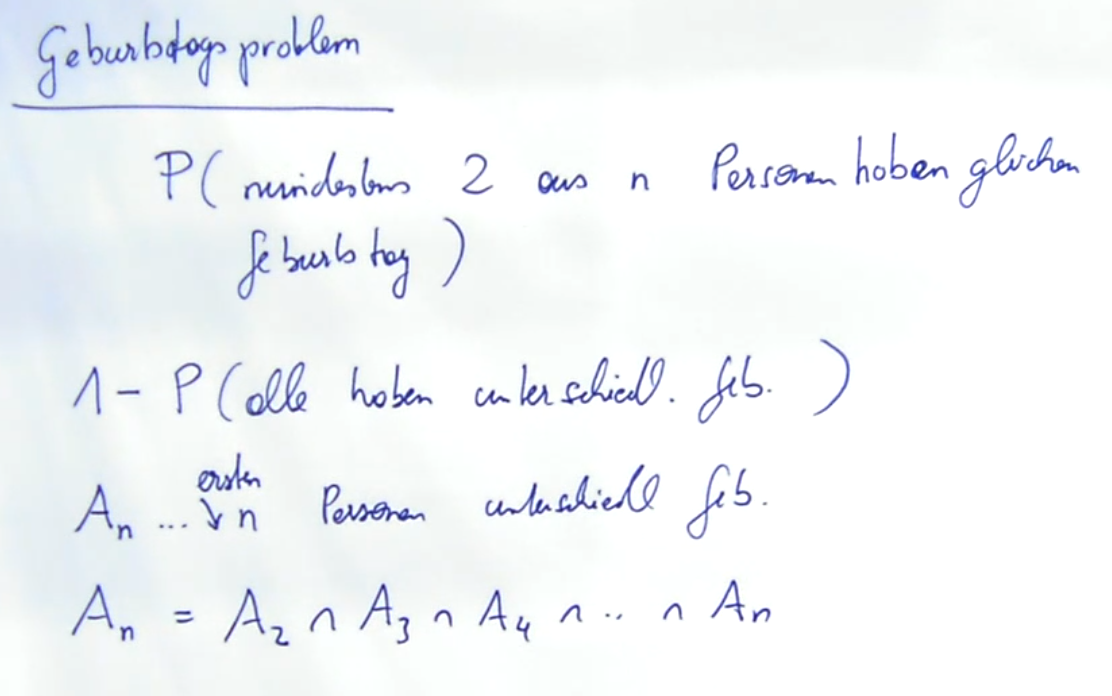 Geburtstagsproblem
P( mindestens 2 aus n Personen haben gleichen
Geburtstag )
1 - P ( alle haben unterschiedl. Geb. )
ersten
A_n ... ↓ n Personen unterschiedl Geb.
A_n = A_2 ∩ A_3 ∩ A_4 ∩ .. ∩ A_n